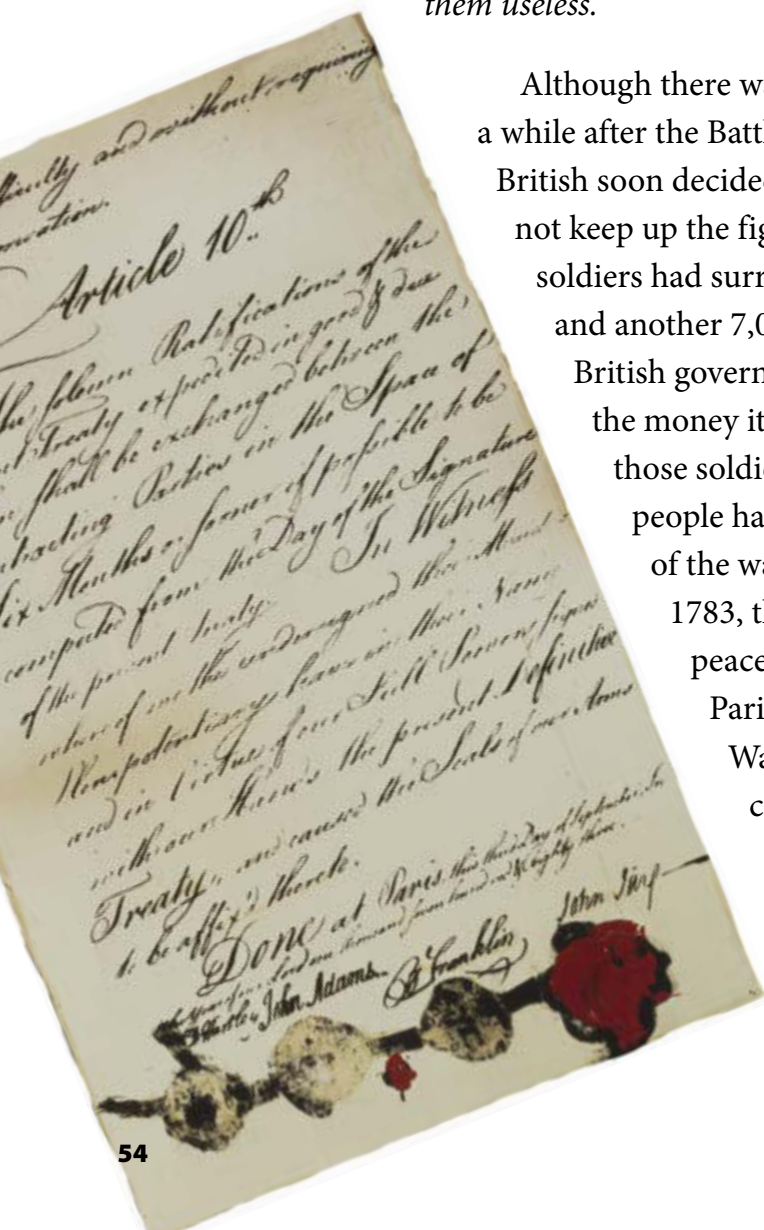 them useless.
Although there wa
a while after the Battl
British soon decided
not keep up the fig
soldiers had surr
and another 7,0
British governm
the money it
those soldie
people ha
of the wa
1783, th
peace
Pari
Wa
c
fficulty and without requiring
Article 10th
the solemn Ratifications of the
Treaty expedited in good & due
shall be exchanged between the
tracting Parties in the Space of
Six Months or sooner if possible to be
computed from the Day of the Signature
of the present treaty. In Witness
whereof we the undersigned their Minis
Plenipotentiary have in their Name
and in Virtue of our Full Powers signed
with our Hands the present Definitive
Treaty, and caused the Seals of our Arms
to be affix'd thereto.
Done at Paris, this third Day of September, In
the Year of our Lord one thousand seven hundred & eighty three.
D Hartley John Adams B Franklin John Jay
54